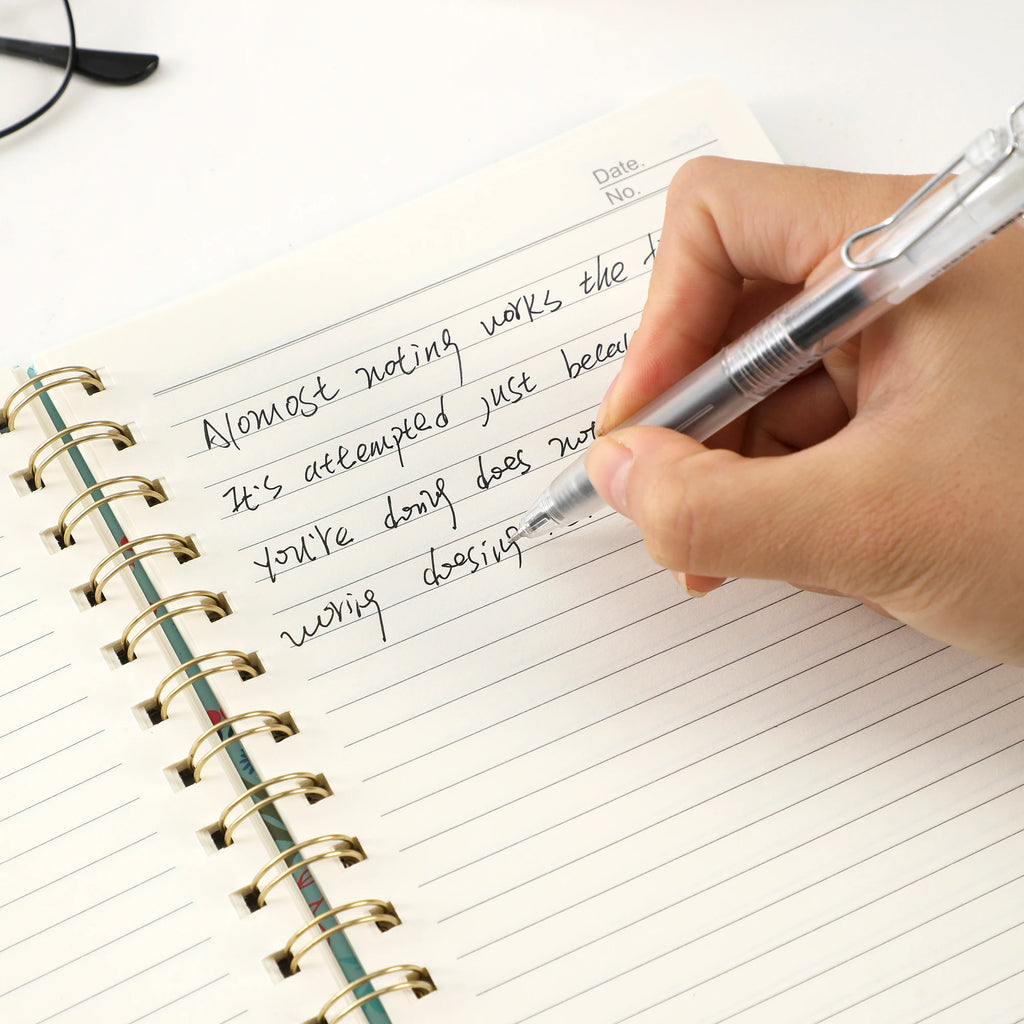 Date.
No.
Alomost noting works the
It's attempted just
you're doing does
woring doesing